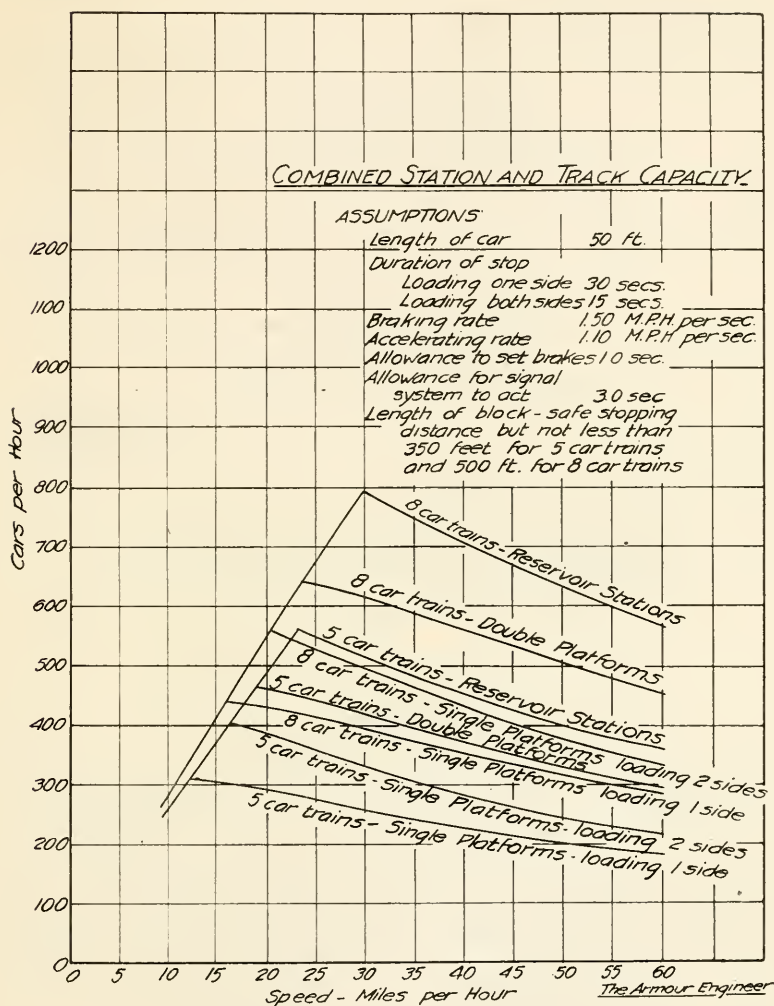 COMBINED STATION AND TRACK CAPACITY.
ASSUMPTIONS
Length of car 50 ft.
Duration of stop
Loading one side 30 secs.
Loading both sides 15 secs.
Braking rate 1.50 M.P.H. per sec.
Accelerating rate 1.10 M.P.H per sec.
Allowance to set brakes 1.0 sec.
Allowance for signal
system to act 3.0 sec
Length of block - safe stopping
distance but not less than
350 feet for 5 car trains
and 500 ft. for 8 car trains
Cars per Hour
1200
1100
1000
900
800
700
600
500
400
300
200
100
0
8 car trains - Reservoir Stations
8 car trains - Double Platforms
5 car trains - Reservoir Stations
8 car trains - Single Platforms loading 2 sides
5 car trains - Double Platforms
8 car trains - Single Platforms loading 1 side
5 car trains - Single Platforms - loading 2 sides
5 car trains - Single Platforms - loading 1 side
0 5 10 15 20 25 30 35 40 45 50 55 60
Speed - Miles per Hour
The Armour Engineer